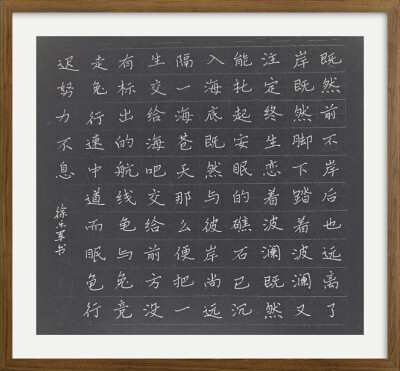 既然前不岸后也远离了
岸既然脚下踏着波澜又
注定终生恋着波澜既然
能托起安眠的礁石已沉
入海底既然与彼岸尚远
隔一海苍天那么便把一
生交给海吧交给前方没
有标出的航线龟与兔竞
走兔行速中道而眠龟行
迟努力不息
徐乐军书